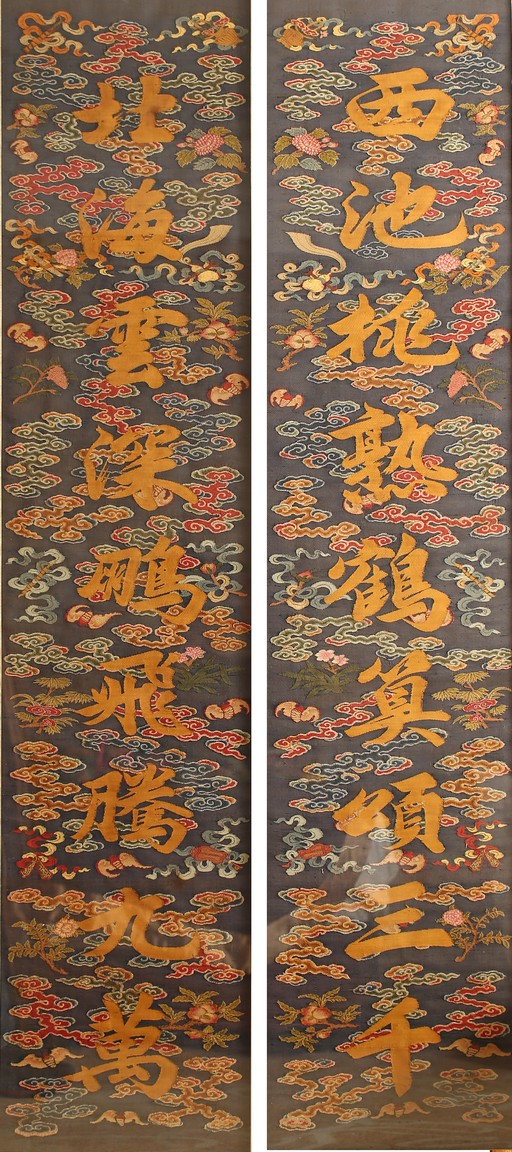 西池桃熟鶴算頌三千
北海雲深鵬飛騰九萬